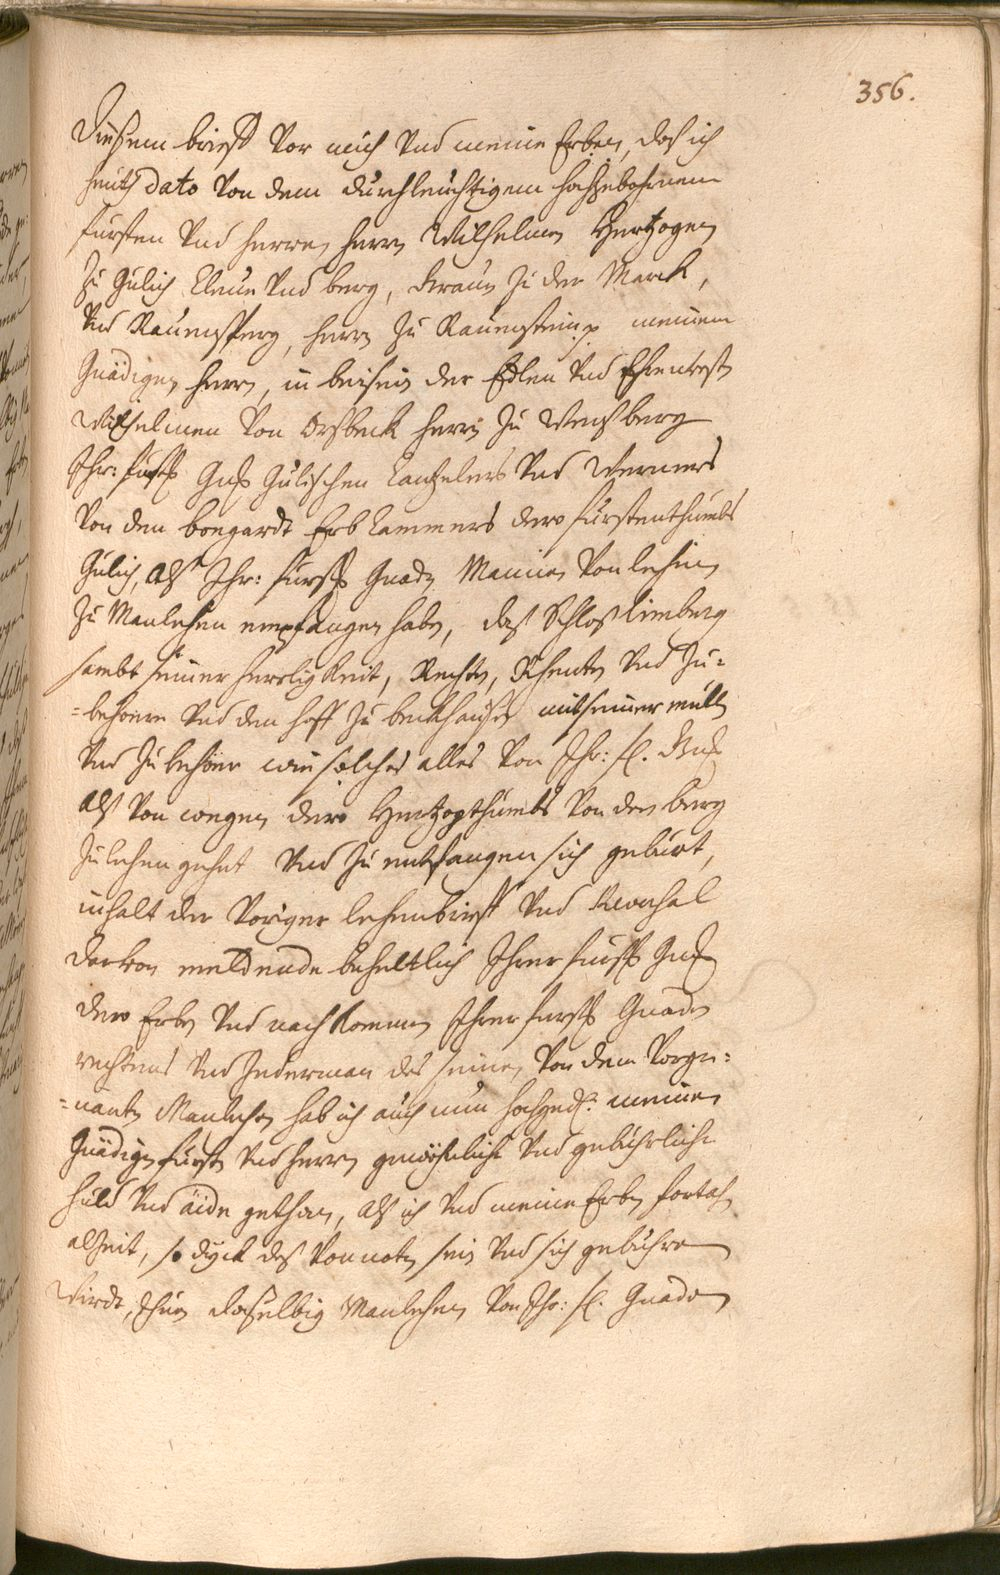 356.
Dießem brieff Vor mich Vnd meine Erben, daß ich
heuth dato Von dem durchleuchtigem hochgebohrnem
fursten Vnd herren herrn Wilhelmen Hertzogen
Zu Gulich Cleue Vnd berg, Grauen Zu der Marck,
Vnd Rauensperg, herrn Zu Rauenstein p meinem
Gnädigen herrn, in beisein der Edlen Vnd Ehrenvest
Wilhelmen Von Orsbeck herrn Zu Wensberg
Ihr: furstl Gnd Gulischen Cantzelers Vnd Werners
Von den bongardt Erb Cammers dero furstenthumbs
Gulich, Alß Ihr: furstl Gnadn Mannen Von lehen
Zu Manlehen empfangen habe, daß Schloß Limberg
sambt seiner herrligkeit, Rechten, Rhenten Vnd Zu=
=behoeren Vnd den hoff Zu berkhausen mit seiner mullen
Vnd Zubehöer wie solches alles Von Ihr: fl. Gnd
Alß Von wegen dero Hertzogthumbs Von den berg
Zu lehen gehet Vnd Zu entfangen sich geburt,
inhalt der Voriger lehenbrieff Vnd Reversal
darvon meldende beheltlich Ihrer furstl Gnd
dero Erben Vnd nachkommen Ihrer furstl Gnaden
rechtens Vnd Jederman des seinen, Von dem Vorge=
=nanten Manlehen hab ich auch nun hochged: meinen
Gnädigen fursten Vnd herrn gewöhnliche Vnd gebührliche
huld Vnd äide gethan, Alß ich Vnd meine Erben fortan
alzeit, so dyck des Von noten sein Vnd sich gebühren
Wirdt, thun daselbig Manlehen Von Ihr: fl. Gnaden